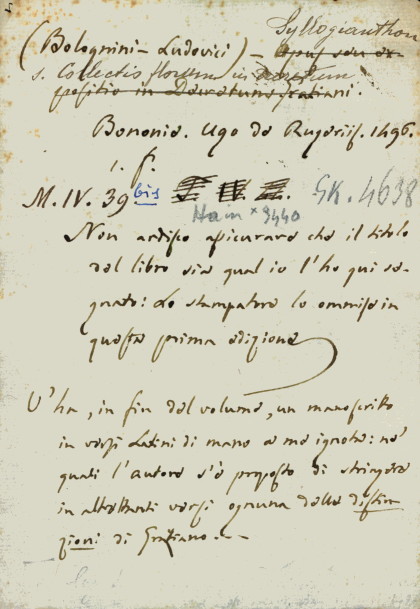 Syllogianthon
(Bolognini - Ludovici) - Opus seu ex-
s. Collectio florum in Decretum
positio in Decretum Gratiani.
Bononie. Ugo de Rugeriis. 1496.
i. f.
M. IV. 39 bis GK. 4638
Hain × 3440
Non ardisco assicurare che il titolo
del libro sia qual io l'ho qui se-
gnato: Lo stampatore lo ommise in
questa prima edizione
V'ha, in fin del volume, un manoscritto
in versi Latini di mano a me ignota: ne'
quali l'autore s'è proposto di stringere
in altrettanti versi ognuna delle distin-
zioni di Graziano. -